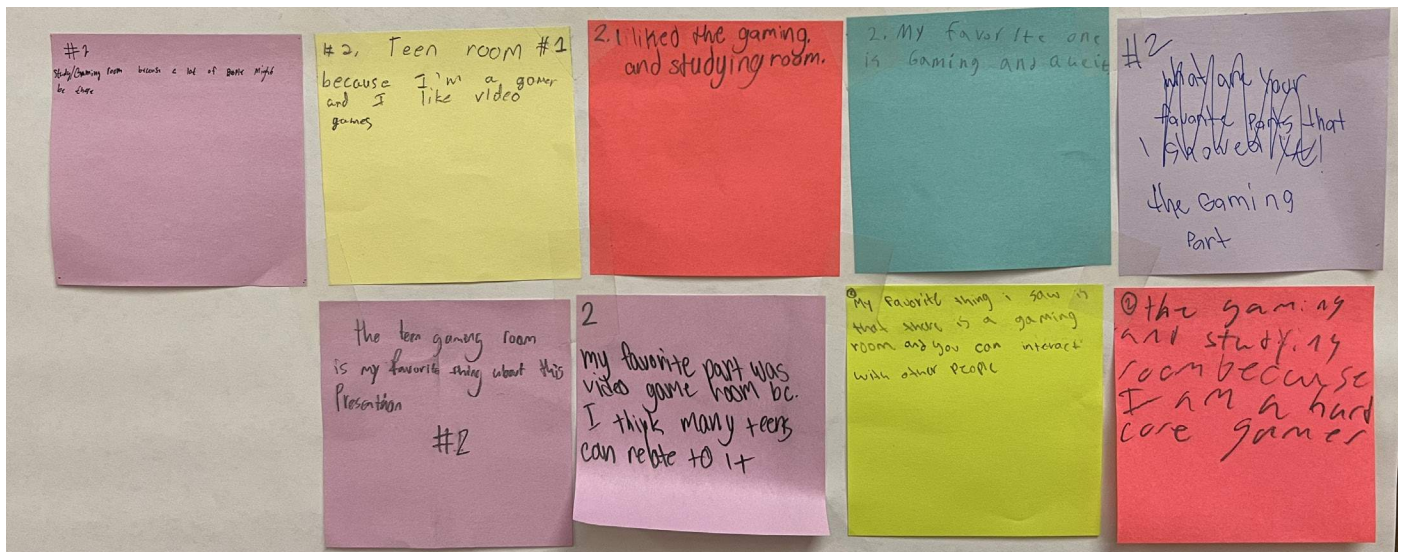 #2
Study/Gaming room because a lot of people might
be there
#2. Teen room #1
because I'm a gamer
and I like video
games
2. I liked the gaming,
and studying room.
2. My favorite one
is Gaming and
#2
What are your
favorite parts that
I showed
the Gaming
Part
the teen gaming room
is my favorite thing about this
#2
2
my favorite part was
video game room bc.
I think many teens
can relate to it
② My favorite thing i saw is
that there is a gaming
room and you can interact
with other people
② the gaming
and studying
room because
I am a hard
core gamer